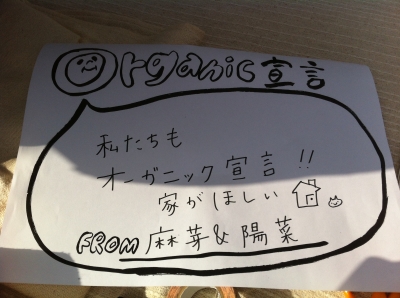 Organic 宣言
私たちも
オーガニック宣言!!
家がほしい
FROM 麻芽&陽菜